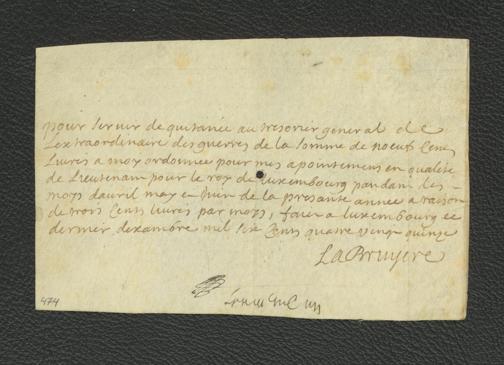 pour servir de quitance au tresorier general de
Lextraordinaire des guerres de la somme de noeuf Cens
Livres a moy ordonnée pour mes apointemens en qualité
de Lieutenan pour le roy de Luxembourg pandan les
moys davril may et Juin de la presante année a raison
de trois Cents livres par moys, fait a luxembourg ce
dernier dexambre mil six Cents quatre vingt quinze
LaBruyere
474